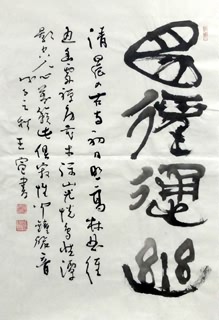 曲徑通幽
清晨入古寺初日明高林曲徑
通幽處禪房花木深山光悅鳥性潭
影空人心萬籟此俱寂惟聞鐘磬音
之秋王書